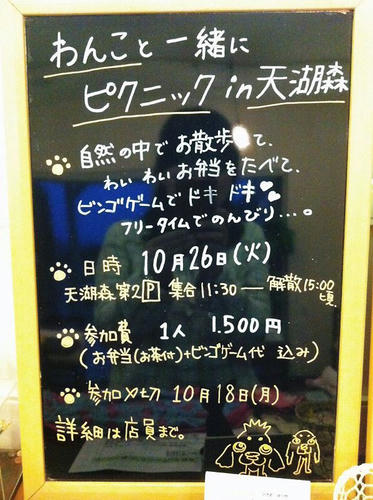 わんこと一緒に
ピクニック in 天湖森
自然の中で お散歩して、
わい わい お弁当をたべて、
ビンゴゲームで ドキ ドキ
フリータイムでのんびり…。
日時 10月26日(火)
天湖森第2P 集合11:30 ― 解散15:00頃
参加費 1人 1.500円
(お弁当(お茶付)+ビンゴゲーム代 込み)
参加〆切 10月18日(月)
詳細は店員まで。